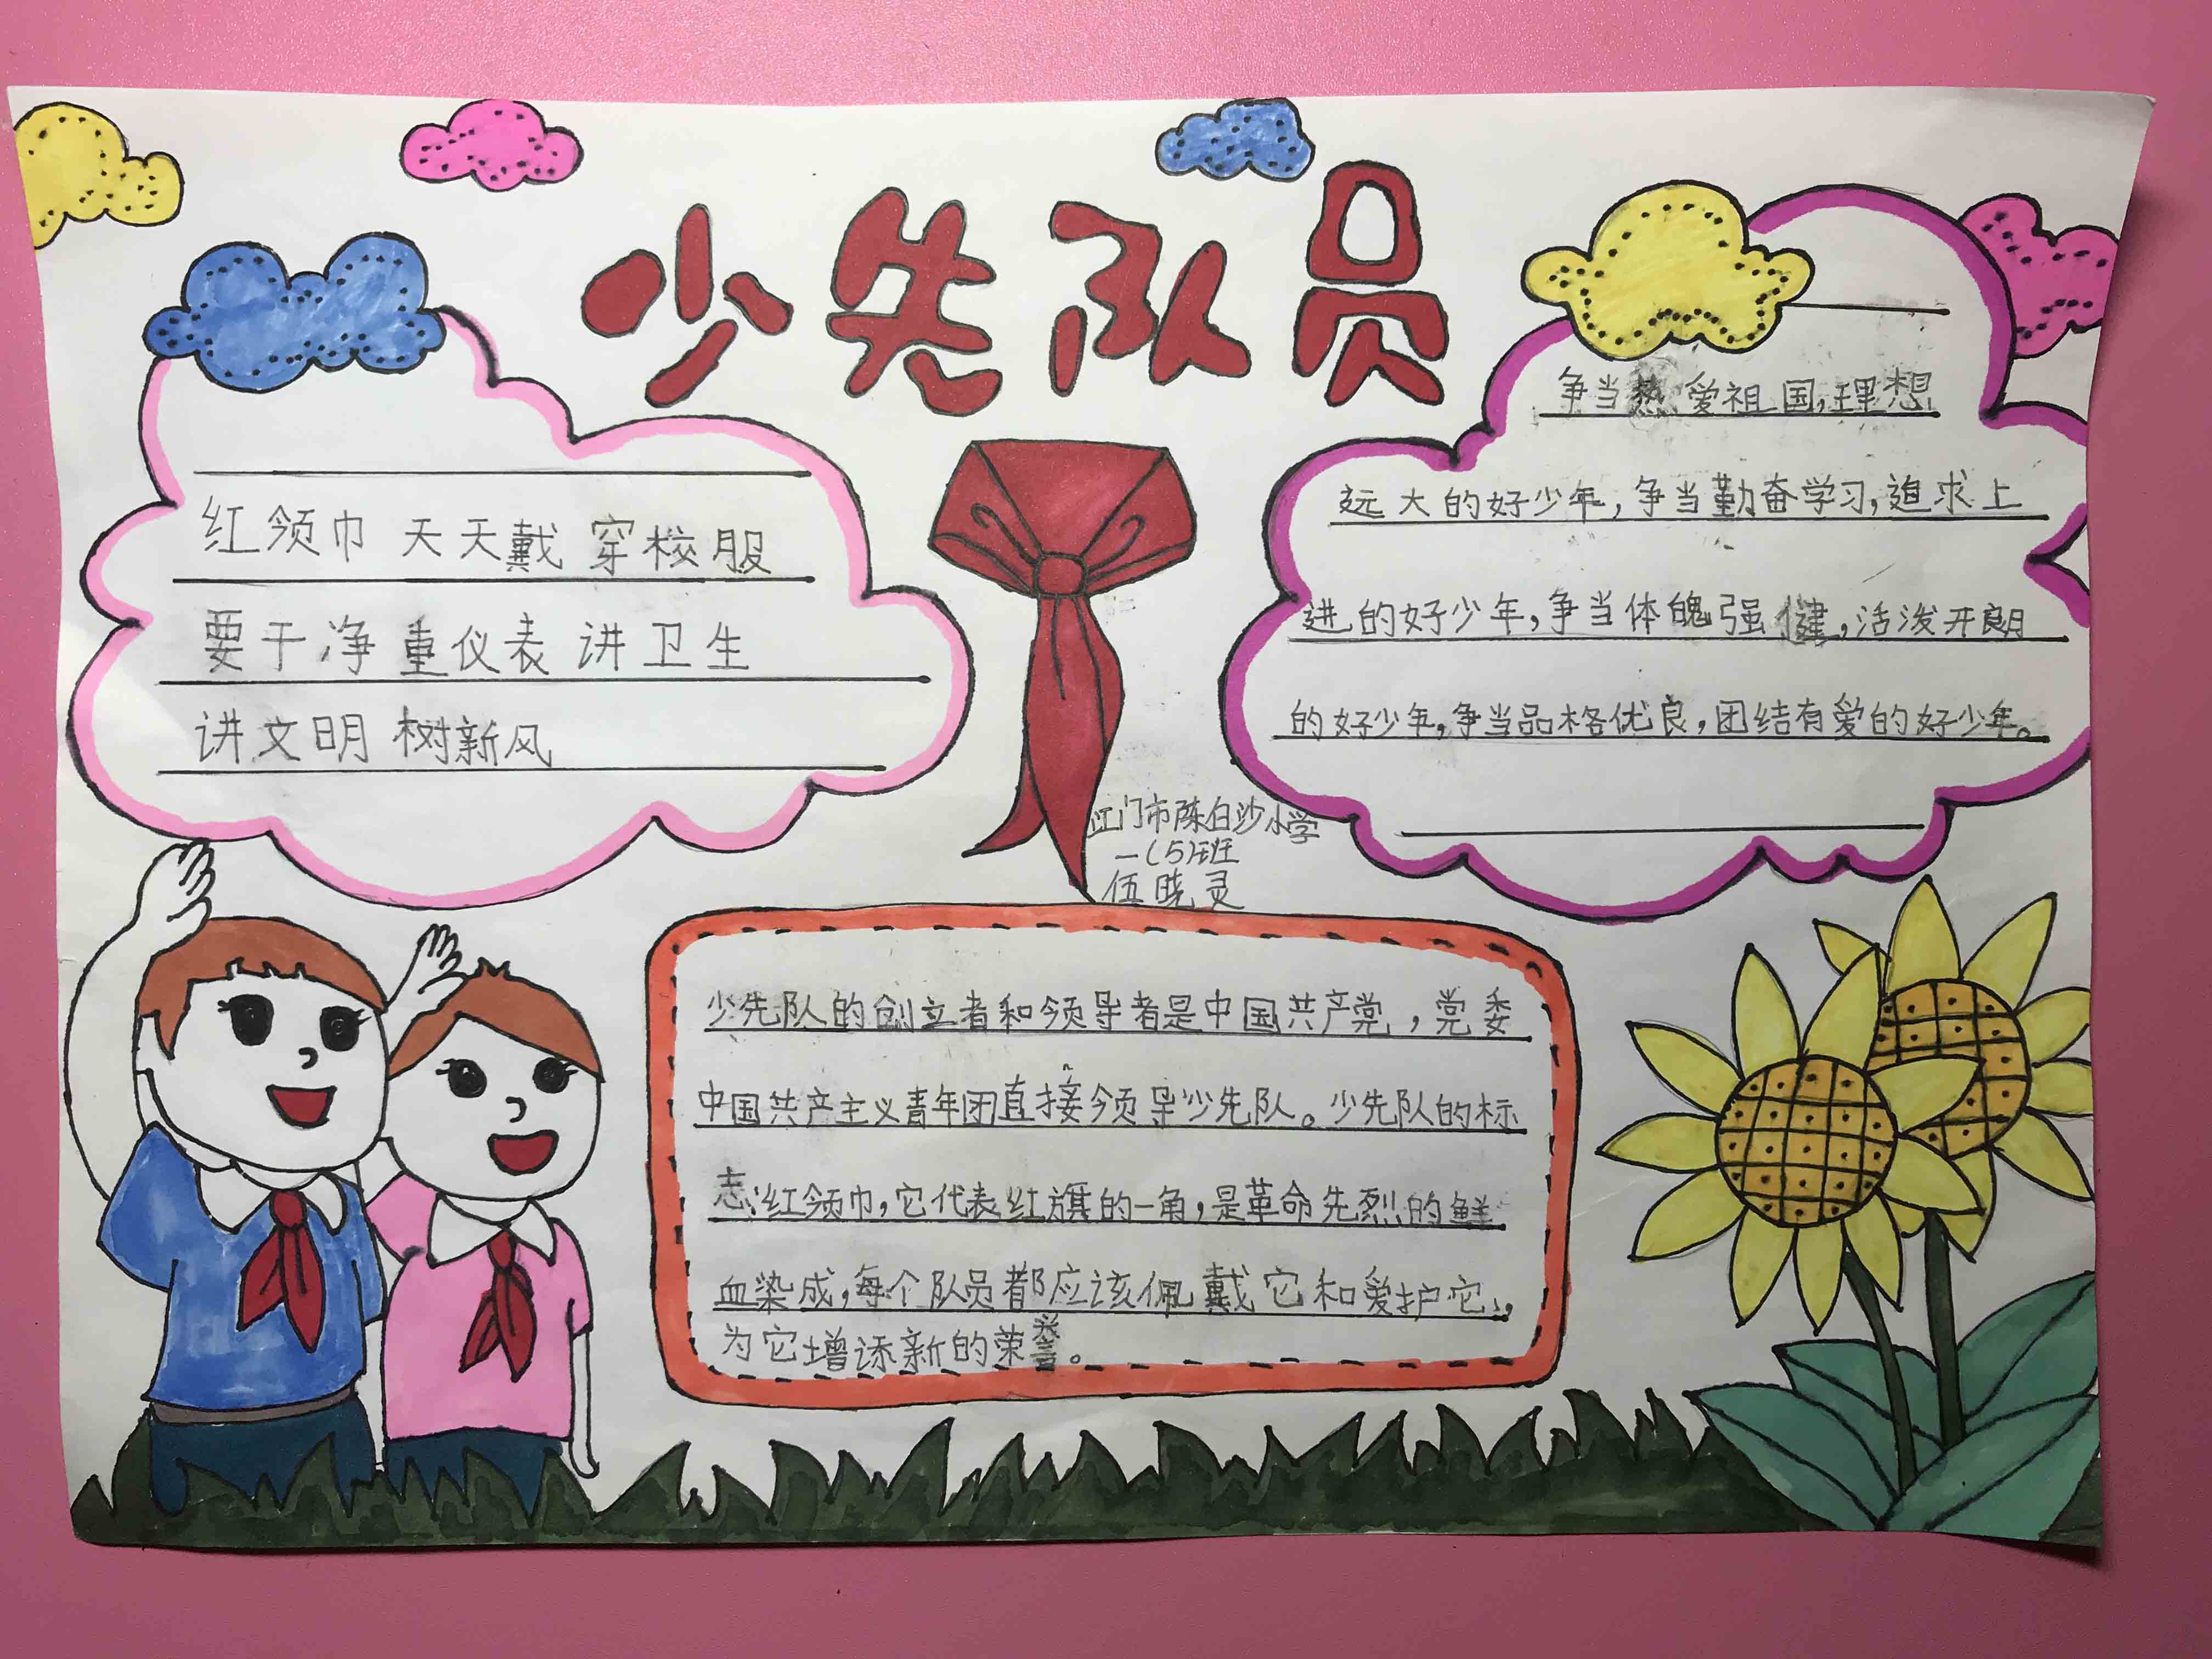 少先队员
红领巾 天天戴 穿校服
要干净 重仪表 讲卫生
讲文明 树新风
争当热爱祖国,理想
远大的好少年,争当勤奋学习,追求上
进的好少年,争当体魄强健,活泼开朗
的好少年,争当品格优良,团结有爱的好少年。
江门市陈白沙小学
一(5)班
伍晓灵
少先队的创立者和领导者是中国共产党,党委
中国共产主义青年团直接领导少先队。少先队的标
志:红领巾,它代表红旗的一角,是革命先烈的鲜
血染成,每个队员都应该佩戴它和爱护它,
为它增添新的荣誉。